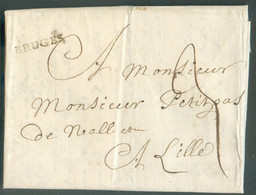 BRUGES
A Monsieur
Monsieur Petitpas
de Walle
A Lille